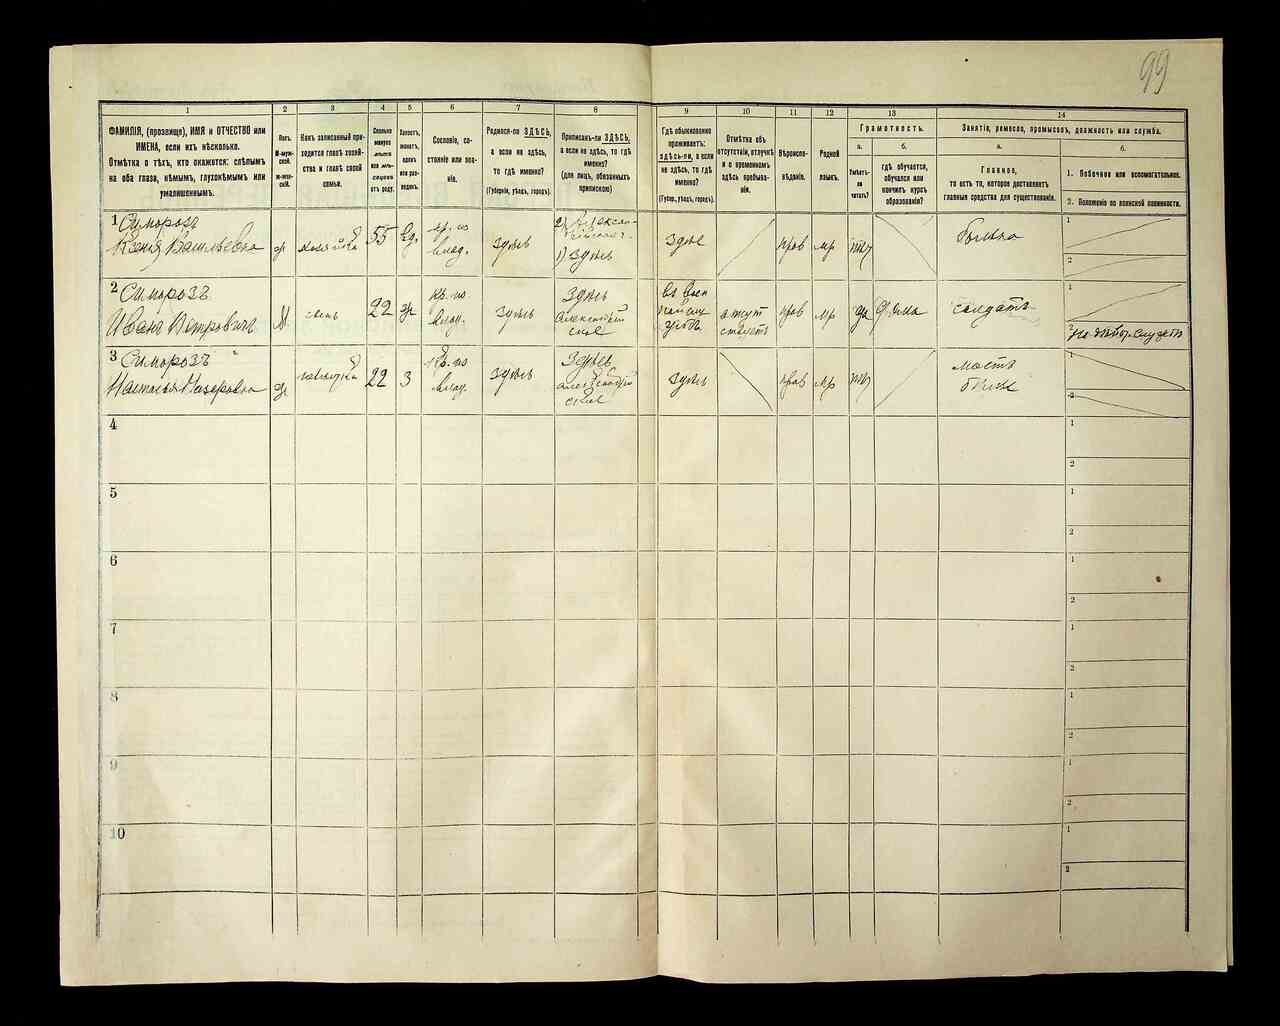 99
1 2 3 4 5 6 7 8 9 10 11 12 13 14
ФАМИЛІЯ, (прозвище), ИМЯ и ОТЧЕСТВО или
ИМЕНА, если ихъ нѣсколько.
Отмѣтка о тѣхъ, кто окажется: слѣпымъ
на оба глаза, нѣмымъ, глухонѣмымъ или
умалишеннымъ.
Полъ.
М-муж-
ской.
Ж-жен-
скій.
Какъ записанный при-
ходится главѣ хозяй-
ства и главѣ своей
семьи.
Сколько
минуло
лѣтъ
или мѣ-
сяцевъ
отъ роду.
Холостъ,
женатъ,
вдовъ
или раз-
веденъ.
Сословіе, со-
стояніе или зва-
ніе.
Родился-ли ЗДѢСЬ,
а если не здѣсь,
то гдѣ именно?
(Губернія, уѣздъ, городъ).
Приписанъ-ли ЗДѢСЬ,
а если не здѣсь, то гдѣ
именно?
(для лицъ, обязанныхъ
припискою)
Гдѣ обыкновенно
проживаетъ:
здѣсь-ли, а если
не здѣсь, то гдѣ
именно?
(Губер., уѣздъ, городъ).
Отмѣтка объ
отсутствіи, отлучкѣ
и о временномъ
здѣсь пребыва-
ніи.
Вѣроиспо-
вѣданіе.
Родной
языкъ.
Грамотность.
а. б.
Умѣетъ-
ли
читать?
гдѣ обучается,
обучался или
кончилъ курсъ
образованія?
Занятіе, ремесло, промыселъ, должность или служба.
а. б.
Главное,
то есть то, которое доставляетъ
главныя средства для существованія.
1. Побочное или вспомогательное.
2. Положеніе по воинской повинности.
1 Симорозъ
Ксенія Васильевна ж хозяйка 55 вд. кр. из влад. здѣсь
1) здѣсь
здѣсь прав мр нѣт
1
2
2 Симорозъ
Иванъ Петровичъ М сынъ 22 кр. из влад. здѣсь здѣсь
прав мр да солдатъ
1
2
3 Симорозъ
Наталья ж невѣстка 22 З кр. из влад. здѣсь здѣсь
здѣсь прав мр нѣт
1
2
4 1
2
5 1
2
6 1
2
7 1
2
8 1
2
9 1
2
10 1
2